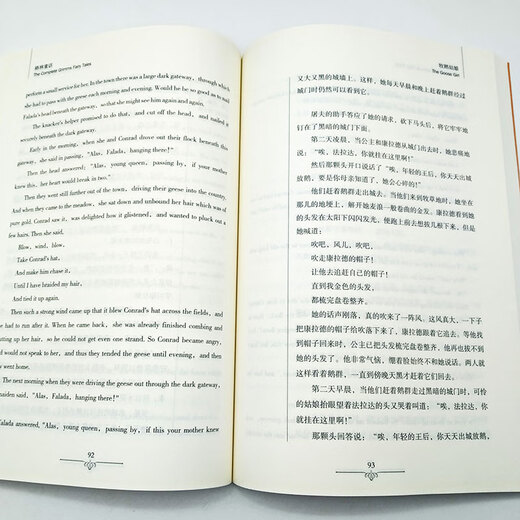 格林童话
The Complete Grimms Fairy Tales
perform a small service for her. In the town there was a large dark gateway, through which
she had to pass with the geese each morning and evening. Would he be so good as to nail
Falada's head beneath the gateway, so that she might see him again and again.
The knacker's helper promised to do that, and cut off the head, and nailed it
securely beneath the dark gateway.
Early in the morning, when she and Conrad drove out their flock beneath this
gateway, she said in passing, "Alas, Falada, hanging there!"
Then the head answered; "Alas, young queen, passing by, if your mother
knew this, her heart would break in two."
Then they went still further out of the town, driving their geese into the country.
And when they came to the meadow, she sat down and unbound her hair which was of
pure gold. Conrad saw it, was delighted how it glistened, and wanted to pluck out a
few hairs. Then she said,
Blow, wind, blow,
Take Conrad's hat,
And make him chase it,
Until I have braided my hair,
And tied it up again.
Then such a strong wind came up that it blew Conrad's hat across the fields, and
he had to run after it. When he came back, she was already finished combing and
putting up her hair, so he could not get even one strand. So Conrad became angry,
and would not speak to her, and thus they tended the geese until evening, and then
they went home.
The next morning when they were driving the geese out through the dark gateway,
maiden said, "Alas, Falada, hanging there!"
Falada answered, "Alas, young queen, passing by, if this your mother knew
92
牧鹅姑娘
The Goose Girl
又大又黑的城墙上。这样,她每天早晨和晚上赶着鹅群经过
城门时仍然可以看到它。
屠夫的助手答应了她的请求,砍下马头后,将它牢牢地
钉在了黑暗的城门下面。
第二天凌晨,当公主和康拉德从城门出去时,她悲痛地
说:“唉,法拉达,你就挂在这里啊!”
然后那颗头开口说话了:“唉,年轻的王后,你天天出
城放鹅,要是你母亲知道了,她会心碎的!”
他们赶着鹅群走出城去。当他们来到牧草地时,她坐在
那儿的地埂上,解开她麦浪一般卷曲的金发。康拉德看到她
的头发在太阳下闪闪发光,便跑上前去想拔几根下来,但是
她喊道:
吹吧,风儿,吹吧,
吹走康拉德的帽子!
让他去追赶自己的帽子!
直到我金色的头发,
都梳完盘卷整齐。
她的话声刚落,真的吹来了一阵风。这风真大,一下子
把康拉德的帽子给吹落下来了,康拉德跟着它追去。等他找
到帽子回来时,公主已把头发梳完盘卷整齐,他再也拔不到
她的头发了。他非常气恼,绷着脸始终不和她说话。两人就
这样看着鹅群,一直到傍晚天黑才赶着它们回去。
第二天早晨,当他们赶着鹅群走过黑暗的城门时,可怜
的姑娘抬眼望着法拉达的头又哭着叫道:“唉,法拉达,你
就挂在这里啊!”
那颗头回答说:“唉,年轻的王后,你天天出城放鹅,
93